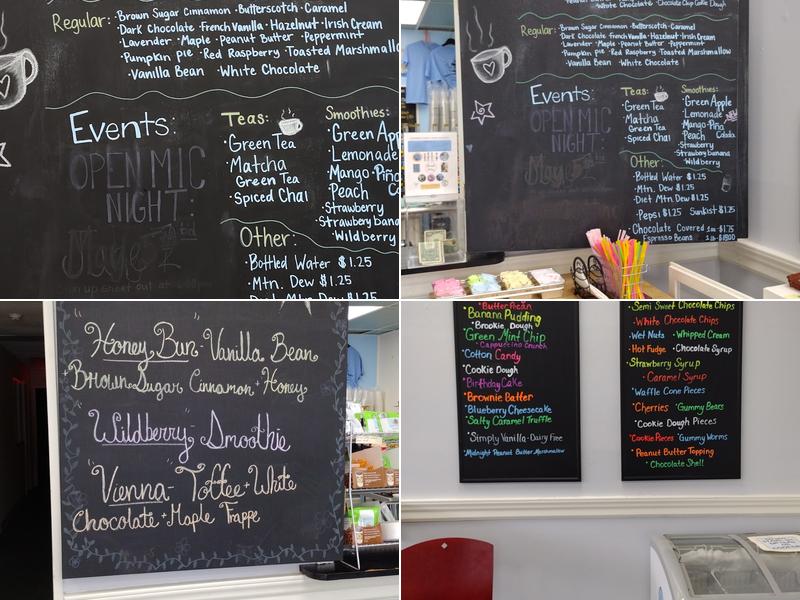 Regular: ·Brown Sugar Cinnamon ·Butterscotch ·Caramel
·Dark Chocolate ·French Vanilla ·Hazelnut ·Irish Cream
·Lavender ·Maple ·Peanut Butter ·Peppermint
·Pumpkin pie ·Red Raspberry ·Toasted Marshmallo
·Vanilla Bean ·White Chocolate
Events:
OPEN MIC
NIGHT:
May
Teas:
·Green Tea
·Matcha
Green Tea
·Spiced Chai
Smoothies:
·Green App
·Lemonade
·Mango-Piña
·Peach Co
·Strawberry
·Strawberry bana
·Wildberry
Other:
·Bottled Water $1.25
·Mtn. Dew $1.25
·Diet Mtn Dew $1.25
White Chocolate ·Chocolate Chip Cookie Dough
Regular: ·Brown Sugar Cinnamon ·Butterscotch ·Caramel
·Dark Chocolate ·French Vanilla ·Hazelnut ·Irish Cream
·Lavender ·Maple ·Peanut Butter ·Peppermint
·Pumpkin pie ·Red Raspberry ·Toasted Marshmallow
·Vanilla Bean ·White Chocolate
Events:
OPEN MIC
NIGHT:
May
Teas:
·Green Tea
·Matcha
Green Tea
·Spiced Chai
Smoothies:
·Green Apple
·Lemonade
·Mango-Piña
·Peach Colada
·Strawberry
·Strawberry banana
·Wildberry
Other:
·Bottled Water $1.25
·Mtn. Dew $1.25
·Diet Mtn Dew $1.25
·Pepsi $1.25 Sunkist $1.25
·Chocolate Covered
Espresso Beans
"Honey Bun"- Vanilla Bean
+ Brown Sugar Cinnamon + Honey
"Wildberry"- Smoothie
"Vienna"- Toffee + White
Chocolate + Maple Frappe
·Butter Pecan
·Banana Pudding
·Brookie Dough
·Green Mint Chip
·Cappuccino Crunch
·Cotton Candy
·Cookie Dough
·Birthday Cake
·Brownie Batter
·Blueberry Cheesecake
·Salty Caramel Truffle
·Simply Vanilla-Dairy Free
·Midnight Peanut Butter Marshmallow
·Semi Sweet Chocolate Chips
·White Chocolate Chips
·Wet Nuts ·Whipped Cream
·Hot Fudge ·Chocolate Syrup
·Strawberry Syrup
·Caramel Syrup
·Waffle Cone Pieces
·Cherries ·Gummy Bears
·Cookie Dough Pieces
·Cookie Pieces ·Gummy Worms
·Peanut Butter Topping
·Chocolate Shell